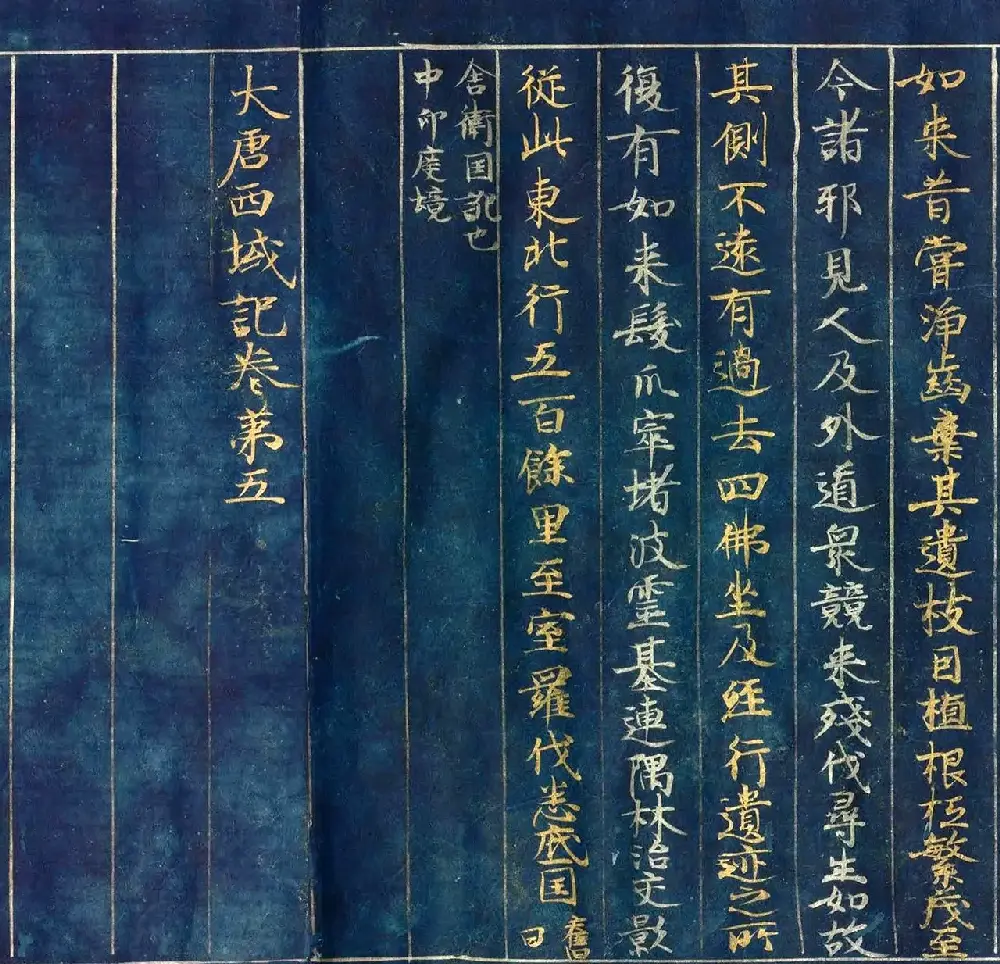 如来昔甞淨齒棄其遺枝因植根柢繁茂至
今諸邪見人及外道衆競来殘伐尋生如故
其側不遠有過去四佛坐及経行遺迹之所
復有如来髪爪窣堵波霊基連隅林沼交影
従此東北行五百餘里至室羅伐悉底国舊曰
舍衛国訛也
中印度境
大唐西域記巻第五